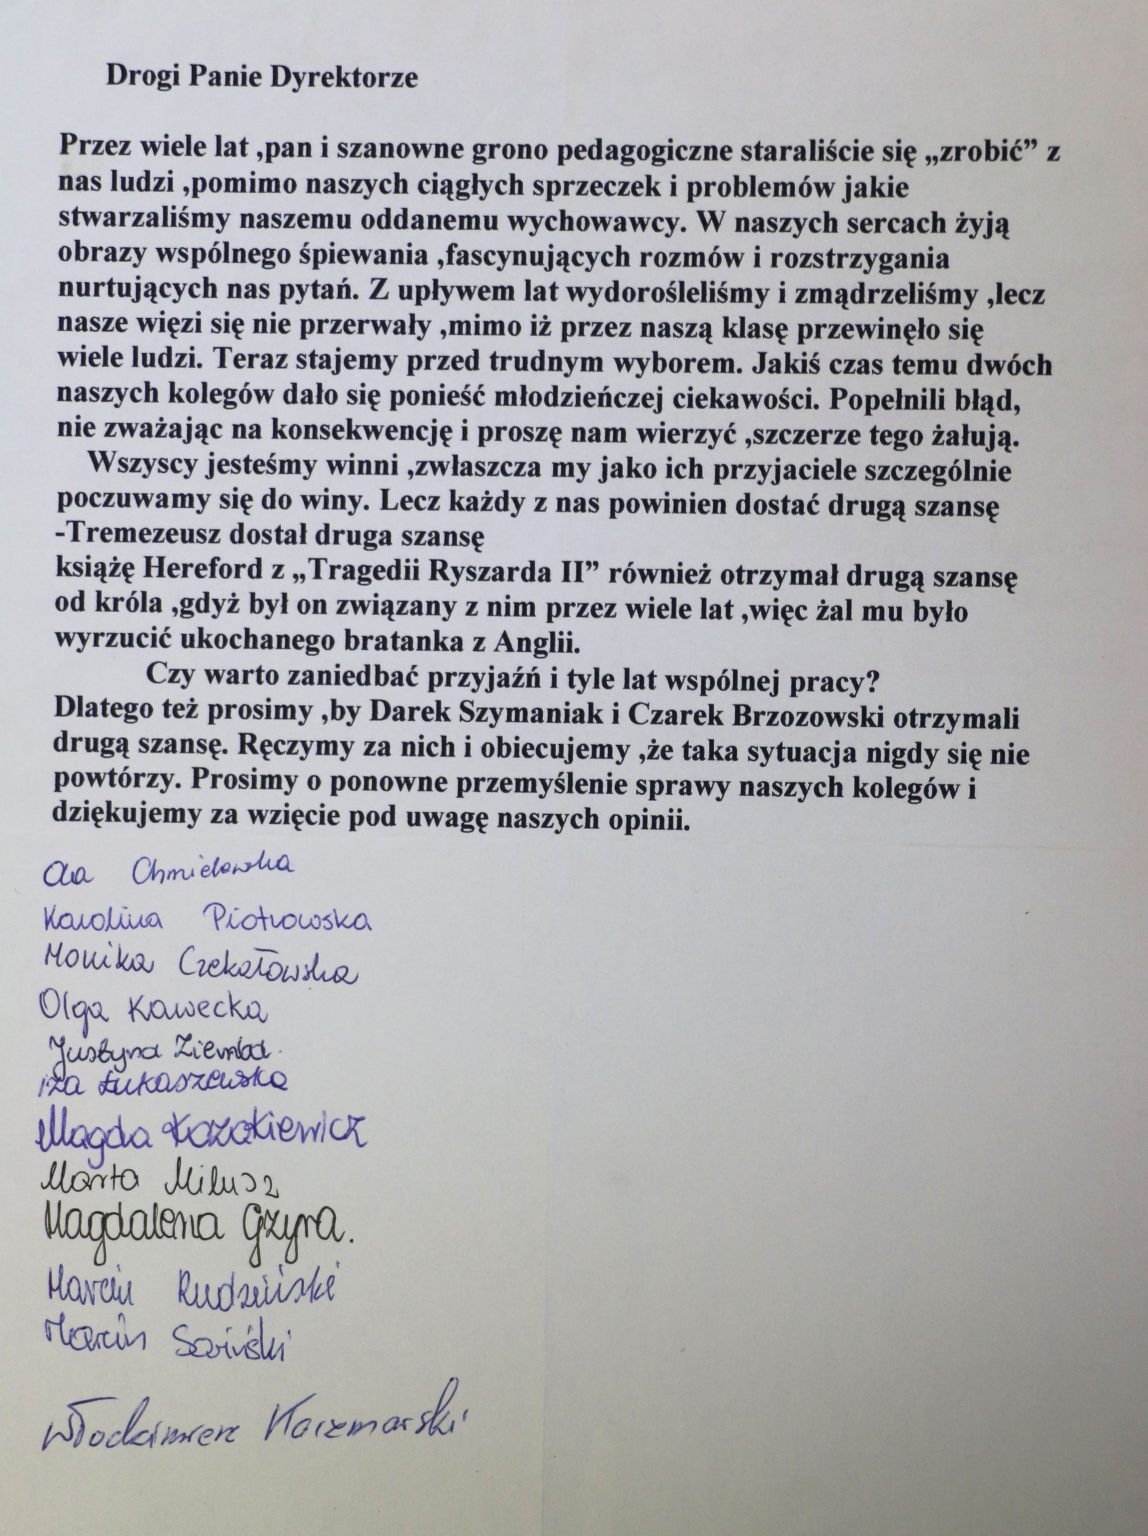 Drogi Panie Dyrektorze
Przez wiele lat ,pan i szanowne grono pedagogiczne staraliście się „zrobić” z
nas ludzi ,pomimo naszych ciągłych sprzeczek i problemów jakie
stwarzaliśmy naszemu oddanemu wychowawcy. W naszych sercach żyją
obrazy wspólnego śpiewania ,fascynujących rozmów i rozstrzygania
nurtujących nas pytań. Z upływem lat wydorośleliśmy i zmądrzeliśmy ,lecz
nasze więzi się nie przerwały ,mimo iż przez naszą klasę przewinęło się
wiele ludzi. Teraz stajemy przed trudnym wyborem. Jakiś czas temu dwóch
naszych kolegów dało się ponieść młodzieńczej ciekawości. Popełnili błąd,
nie zważając na konsekwencję i proszę nam wierzyć ,szczerze tego żałują.
Wszyscy jesteśmy winni ,zwłaszcza my jako ich przyjaciele szczególnie
poczuwamy się do winy. Lecz każdy z nas powinien dostać drugą szansę
-Tremezeusz dostał druga szansę
książę Hereford z „Tragedii Ryszarda II” również otrzymał drugą szansę
od króla ,gdyż był on związany z nim przez wiele lat ,więc żal mu było
wyrzucić ukochanego bratanka z Anglii.
Czy warto zaniedbać przyjaźń i tyle lat wspólnej pracy?
Dlatego też prosimy ,by Darek Szymaniak i Czarek Brzozowski otrzymali
drugą szansę. Ręczymy za nich i obiecujemy ,że taka sytuacja nigdy się nie
powtórzy. Prosimy o ponowne przemyślenie sprawy naszych kolegów i
dziękujemy za wzięcie pod uwagę naszych opinii.
Chmielewska
Karolina Piotrowska
Monika Czekałowska
Olga Kawecka
Justyna Ziemba
Iza Łukaszewska
Magda Kazakiewicz
Marta Milusz
Magdalena Gzyra.
Marcin Rudziński
Marcin
Włodzimierz Kaczmarski